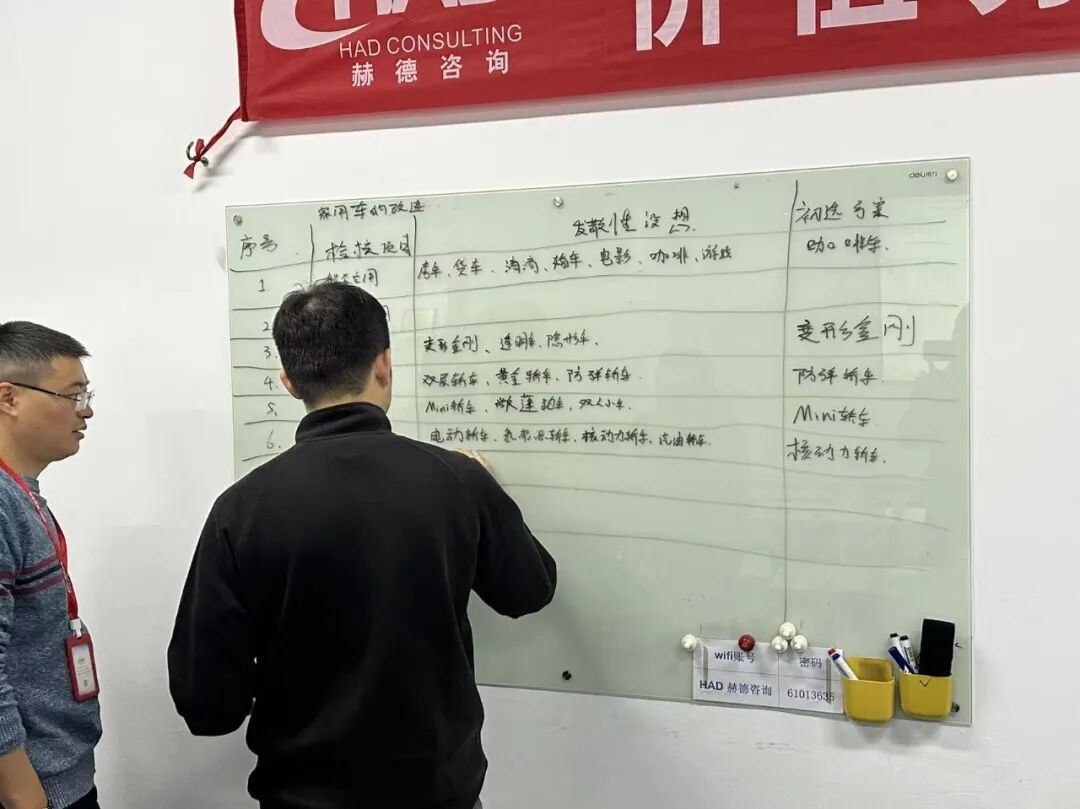 HAD CONSULTING
赫德咨询
deli得力
家用车的改进
序号 检核项目 发散性设想 初选方案
1. 房车、货车、消消、婚车、电影、咖啡、游戏 咖啡车.
2
3. 变形金刚、透明车、隐形车. 变形金刚
4. 双层轿车、黄金轿车、防弹轿车. 防弹轿车.
5、 Mini轿车、敞篷跑车、双人小车. Mini轿车.
6. 电动轿车、轿车、核动力轿车、汽油轿车. 核动力轿车.
wifi账号 密码
HAD 赫德咨询 61013635